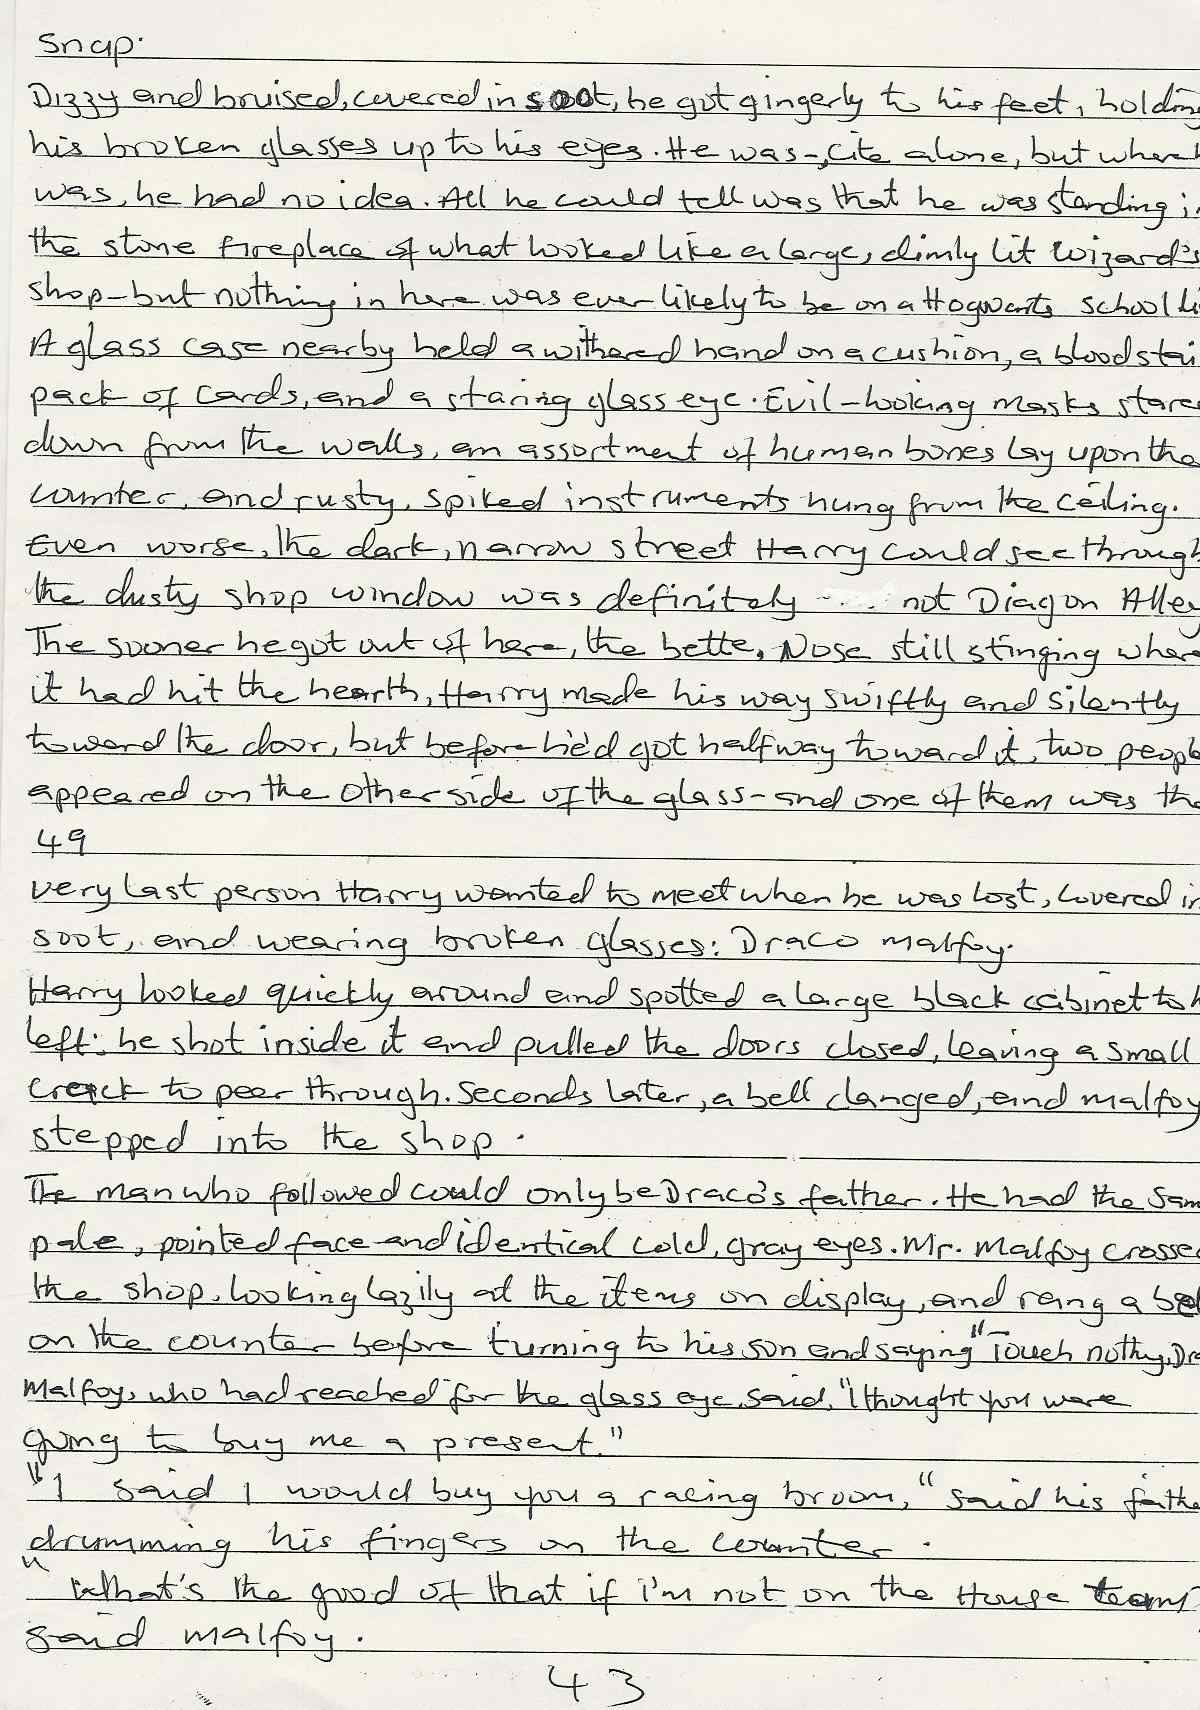 Snap.
Dizzy and bruised, covered in soot, he got gingerly to his feet, holding
his broken glasses up to his eyes. He was cite alone, but where h
was, he had no idea. All he could tell was that he was standing in
the stone fireplace of what looked like a large, dimly lit wizard's
shop - but nothing in here was ever likely to be on a Hogwarts school li
A glass case nearby held a withered hand on a cushion, a bloodstai
pack of cards, and a staring glass eye. Evil-looking masks stare
down from the walls, an assortment of human bones lay upon the
counter, and rusty, spiked instruments hung from the ceiling.
Even worse, the dark, narrow street Harry could see through
the dusty shop window was definitely not Diagon Alley
The sooner he got out of here, the bette, Nose still stinging where
it had hit the hearth, Harry made his way swiftly and silently
toward the door, but before he'd got halfway toward it, two people
appeared on the other side of the glass - and one of them was the
49
very last person Harry wanted to meet when he was lost, covered in
soot, and wearing broken glasses: Draco Malfoy.
Harry looked quickly around and spotted a large black cabinet to h
left; he shot inside it and pulled the doors closed, leaving a small
crack to peer through. Seconds later, a bell clanged, and Malfoy
stepped into the shop.
The man who followed could only be Draco's father. He had the sam
pale, pointed face and identical cold, gray eyes. Mr. Malfoy crosse
the shop, looking lazily at the items on display, and rang a bel
on the counter before turning to his son and saying "Touch nothing, Dra
Malfoy, who had reached for the glass eye, said, "I thought you were
going to buy me a present."
"I said I would buy you a racing broom," said his fathe
drumming his fingers on the counter.
"What's the good of that if I'm not on the House team,
said Malfoy.
43